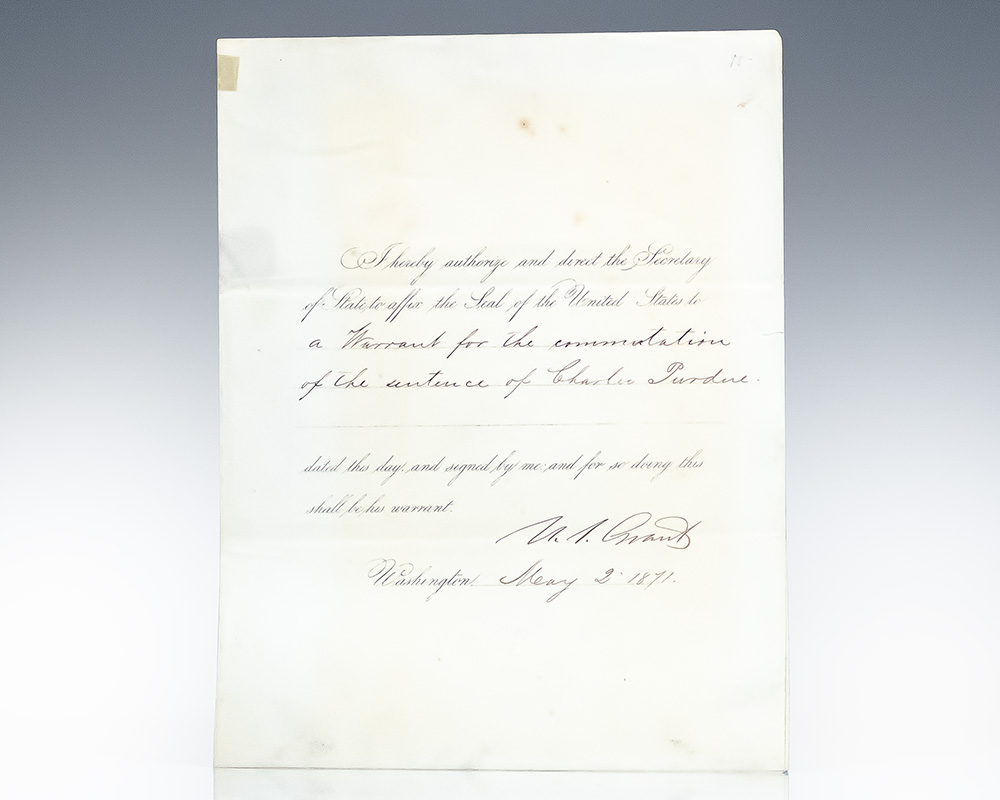 I hereby authorize and direct the Secretary
of State to affix the Seal of the United States to
a Warrant for the commutation
of the sentence of Charles Purdue.
dated this day, and signed by me; and for so doing this
shall be his warrant.
U. S. Grant
Washington, May 2 1871.